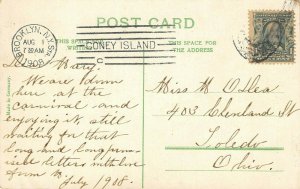 POST CARD
BROOKLYN, N.Y. STA.
AUG 1
1908
CONEY ISLAND
C
THIS SPACE FOR
WRITING
THIS SPACE FOR
THE ADDRESS
Made in Germany.
Dear Mary
We are down
here at the
carnival and
enjoying it, still
waiting for that
long and long prom
ised letters with love
from M.
July 1908.
Miss M Odlea
403 Clenland St
Toledo
Ohio.